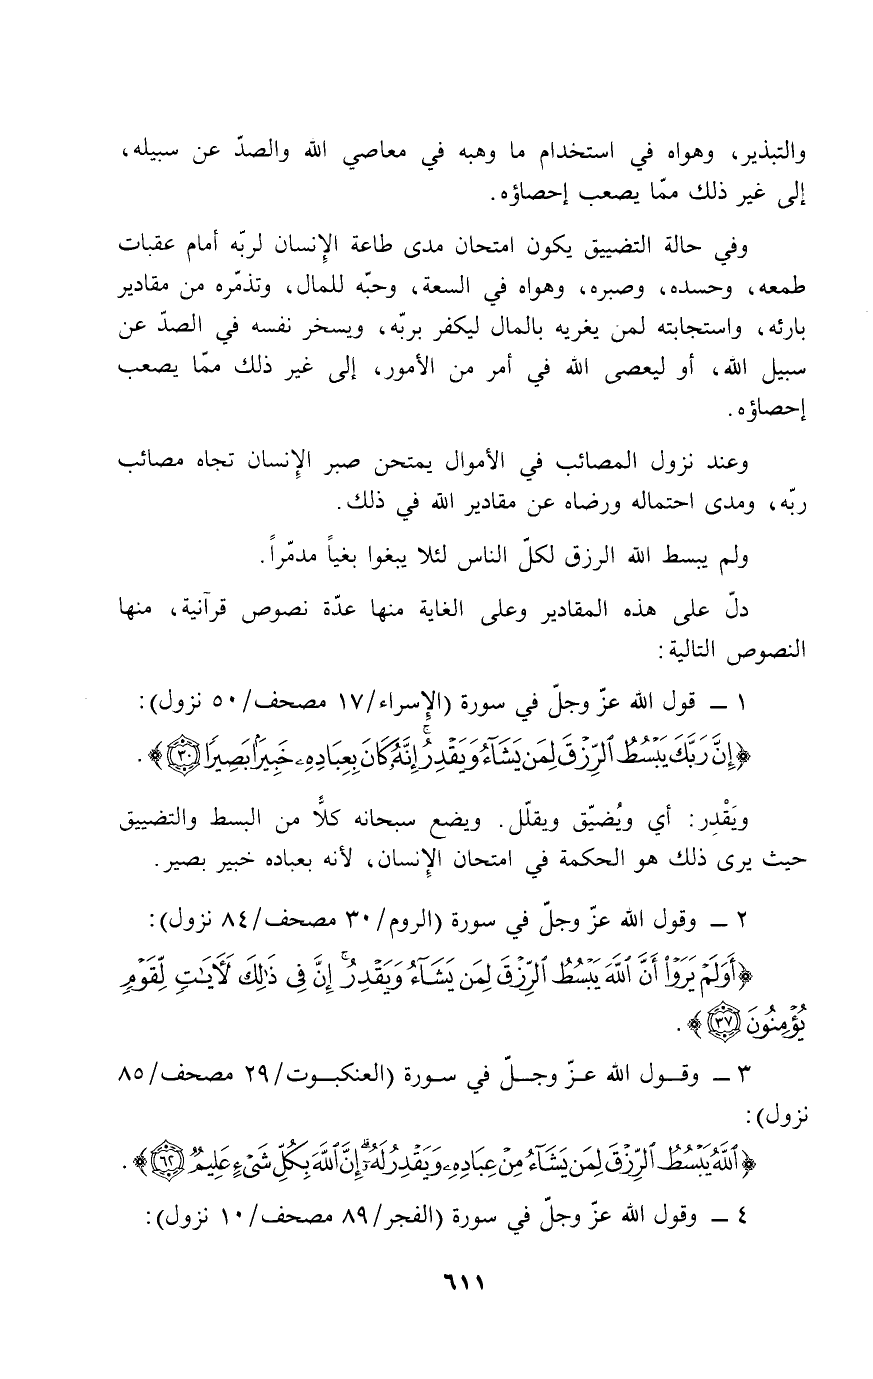 والتبذير، وهواه في استخدام ما وهبه في معاصي الله والصدّ عن سبيله،
إلى غير ذلك ممّا يصعب إحصاؤه.
وفي حالة التضييق يكون امتحان مدى طاعة الإنسان لربّه أمام عقبات
طمعه، وحسده، وصبره، وهواه في السعة، وحبّه للمال، وتذمّره من مقادير
بارئه، واستجابته لمن يغريه بالمال ليكفر بربّه، ويسخر نفسه في الصدّ عن
سبيل الله، أو ليعصى الله في أمر من الأمور، إلى غير ذلك ممّا يصعب
إحصاؤه.
وعند نزول المصائب في الأموال يمتحن صبر الإنسان تجاه مصائب
ربّه، ومدى احتماله ورضاه عن مقادير الله في ذلك.
ولم يبسط الله الرزق لكلّ الناس لئلا يبغوا بغياً مدمّراً.
دلّ على هذه المقادير وعلى الغاية منها عدّة نصوص قرآنية، منها
النصوص التالية:
١ ــ قول الله عزّ وجلّ في سورة (الإسراء/١٧ مصحف/٥٠ نزول):
﴿إِنَّ رَبَّكَ يَبْسُطُ ٱلرِّزْقَ لِمَن يَشَآءُ وَيَقْدِرُ ۚ إِنَّهُۥ كَانَ بِعِبَادِهِۦ خَبِيرًۢا بَصِيرًا ۝٣٠﴾.
ويَقْدِر: أي ويُضيّق ويقلّل. ويضع سبحانه كلًّا من البسط والتضييق
حيث يرى ذلك هو الحكمة في امتحان الإنسان، لأنه بعباده خبير بصير.
٢ ــ وقول الله عزّ وجلّ في سورة (الروم/٣٠ مصحف/٨٤ نزول):
﴿أَوَلَمْ يَرَوْا۟ أَنَّ ٱللَّهَ يَبْسُطُ ٱلرِّزْقَ لِمَن يَشَآءُ وَيَقْدِرُ ۚ إِنَّ فِى ذَٰلِكَ لَأٓيَـٰتٍ لِّقَوْمٍ
يُؤْمِنُونَ ۝٣٧﴾.
٣ ــ وقــول الله عــزّ وجــلّ في ســورة (العنكبــوت/٢٩ مصحف/٨٥
نزول):
﴿ٱللَّهُ يَبْسُطُ ٱلرِّزْقَ لِمَن يَشَآءُ مِنْ عِبَادِهِۦ وَيَقْدِرُ لَهُۥٓ ۚ إِنَّ ٱللَّهَ بِكُلِّ شَىْءٍ عَلِيمٌ ۝٦٢﴾.
٤ ــ وقول الله عزّ وجلّ في سورة (الفجر/٨٩ مصحف/١٠ نزول):
٦١١